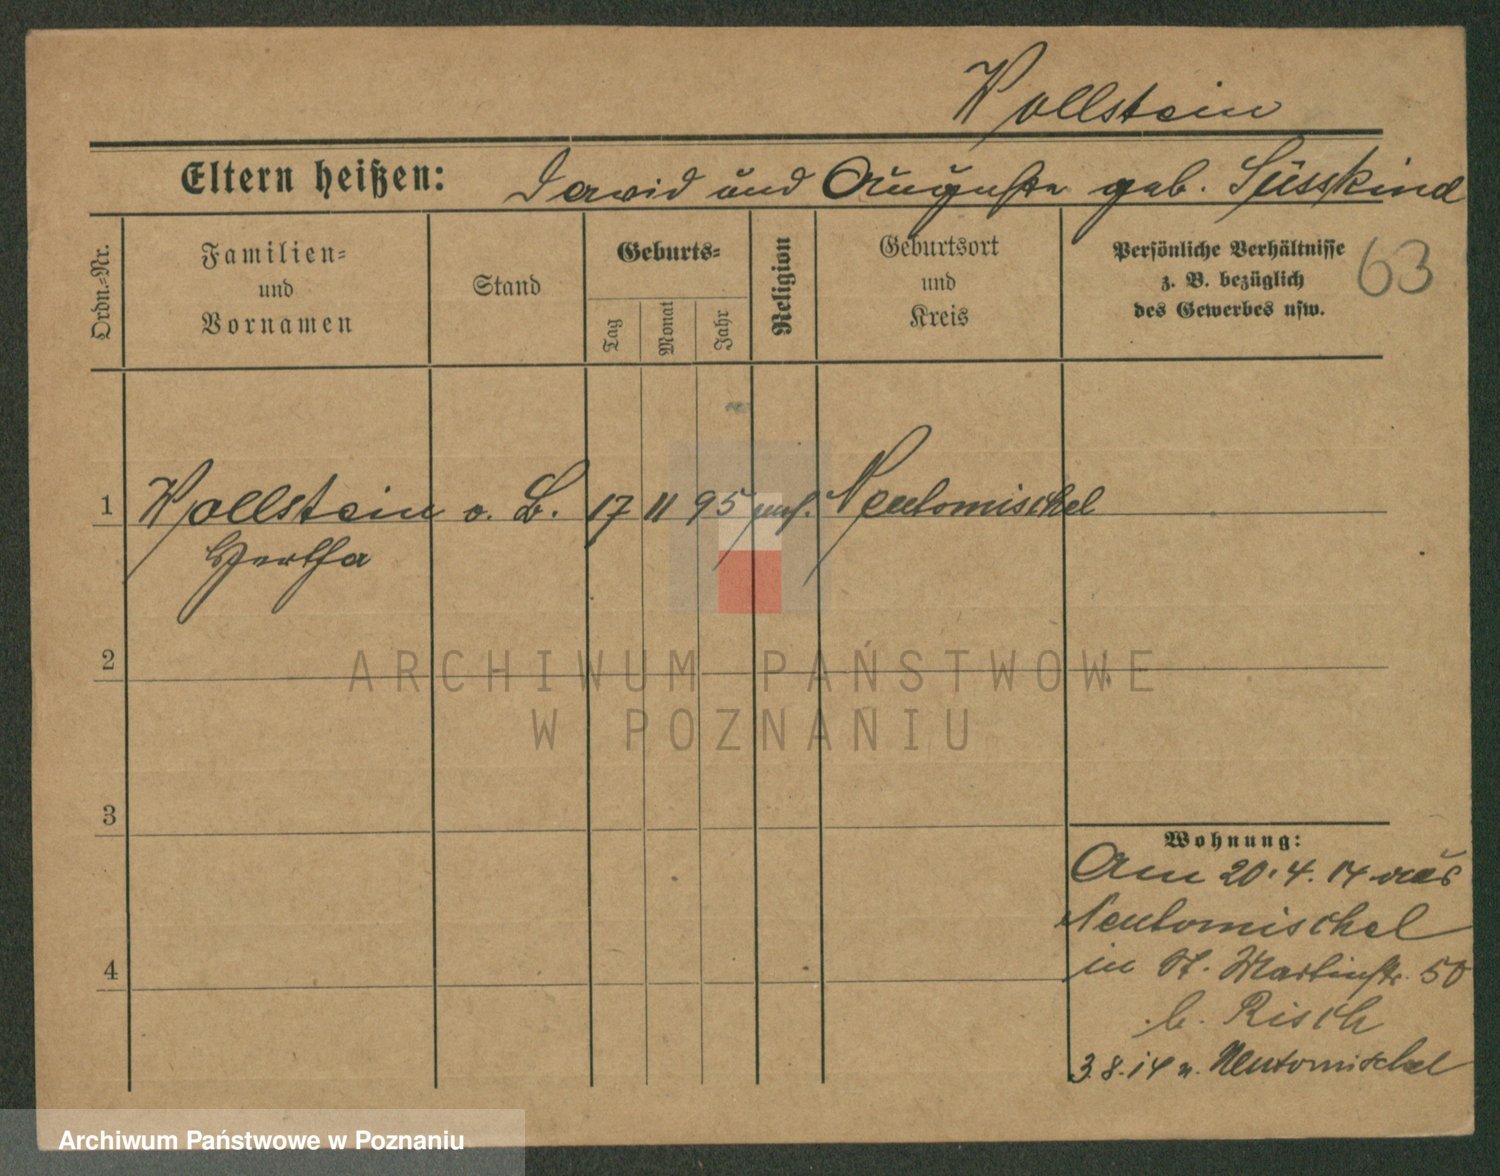 Wollstein
Eltern heißen: David und Auguste geb. Süsskind
Ordn.-Nr.
Familien-
und
Vornamen
Stand
Geburts-
Tag
Monat
Jahr
Religion
Geburtsort
und
Kreis
Persönliche Verhältnisse
z. B. bezüglich
des Gewerbes usw.
63
1 Wollstein o. B. 17 11 95 Neutomischel
Hertha
2
3
4
Wohnung:
Am 20.4.14 aus
Neutomischel
in St. Martinstr. 50
b. Risch
3.8.14 n. Neutomischel
ARCHIWUM PAŃSTWOWE
W POZNANIU
Archiwum Państwowe w Poznaniu